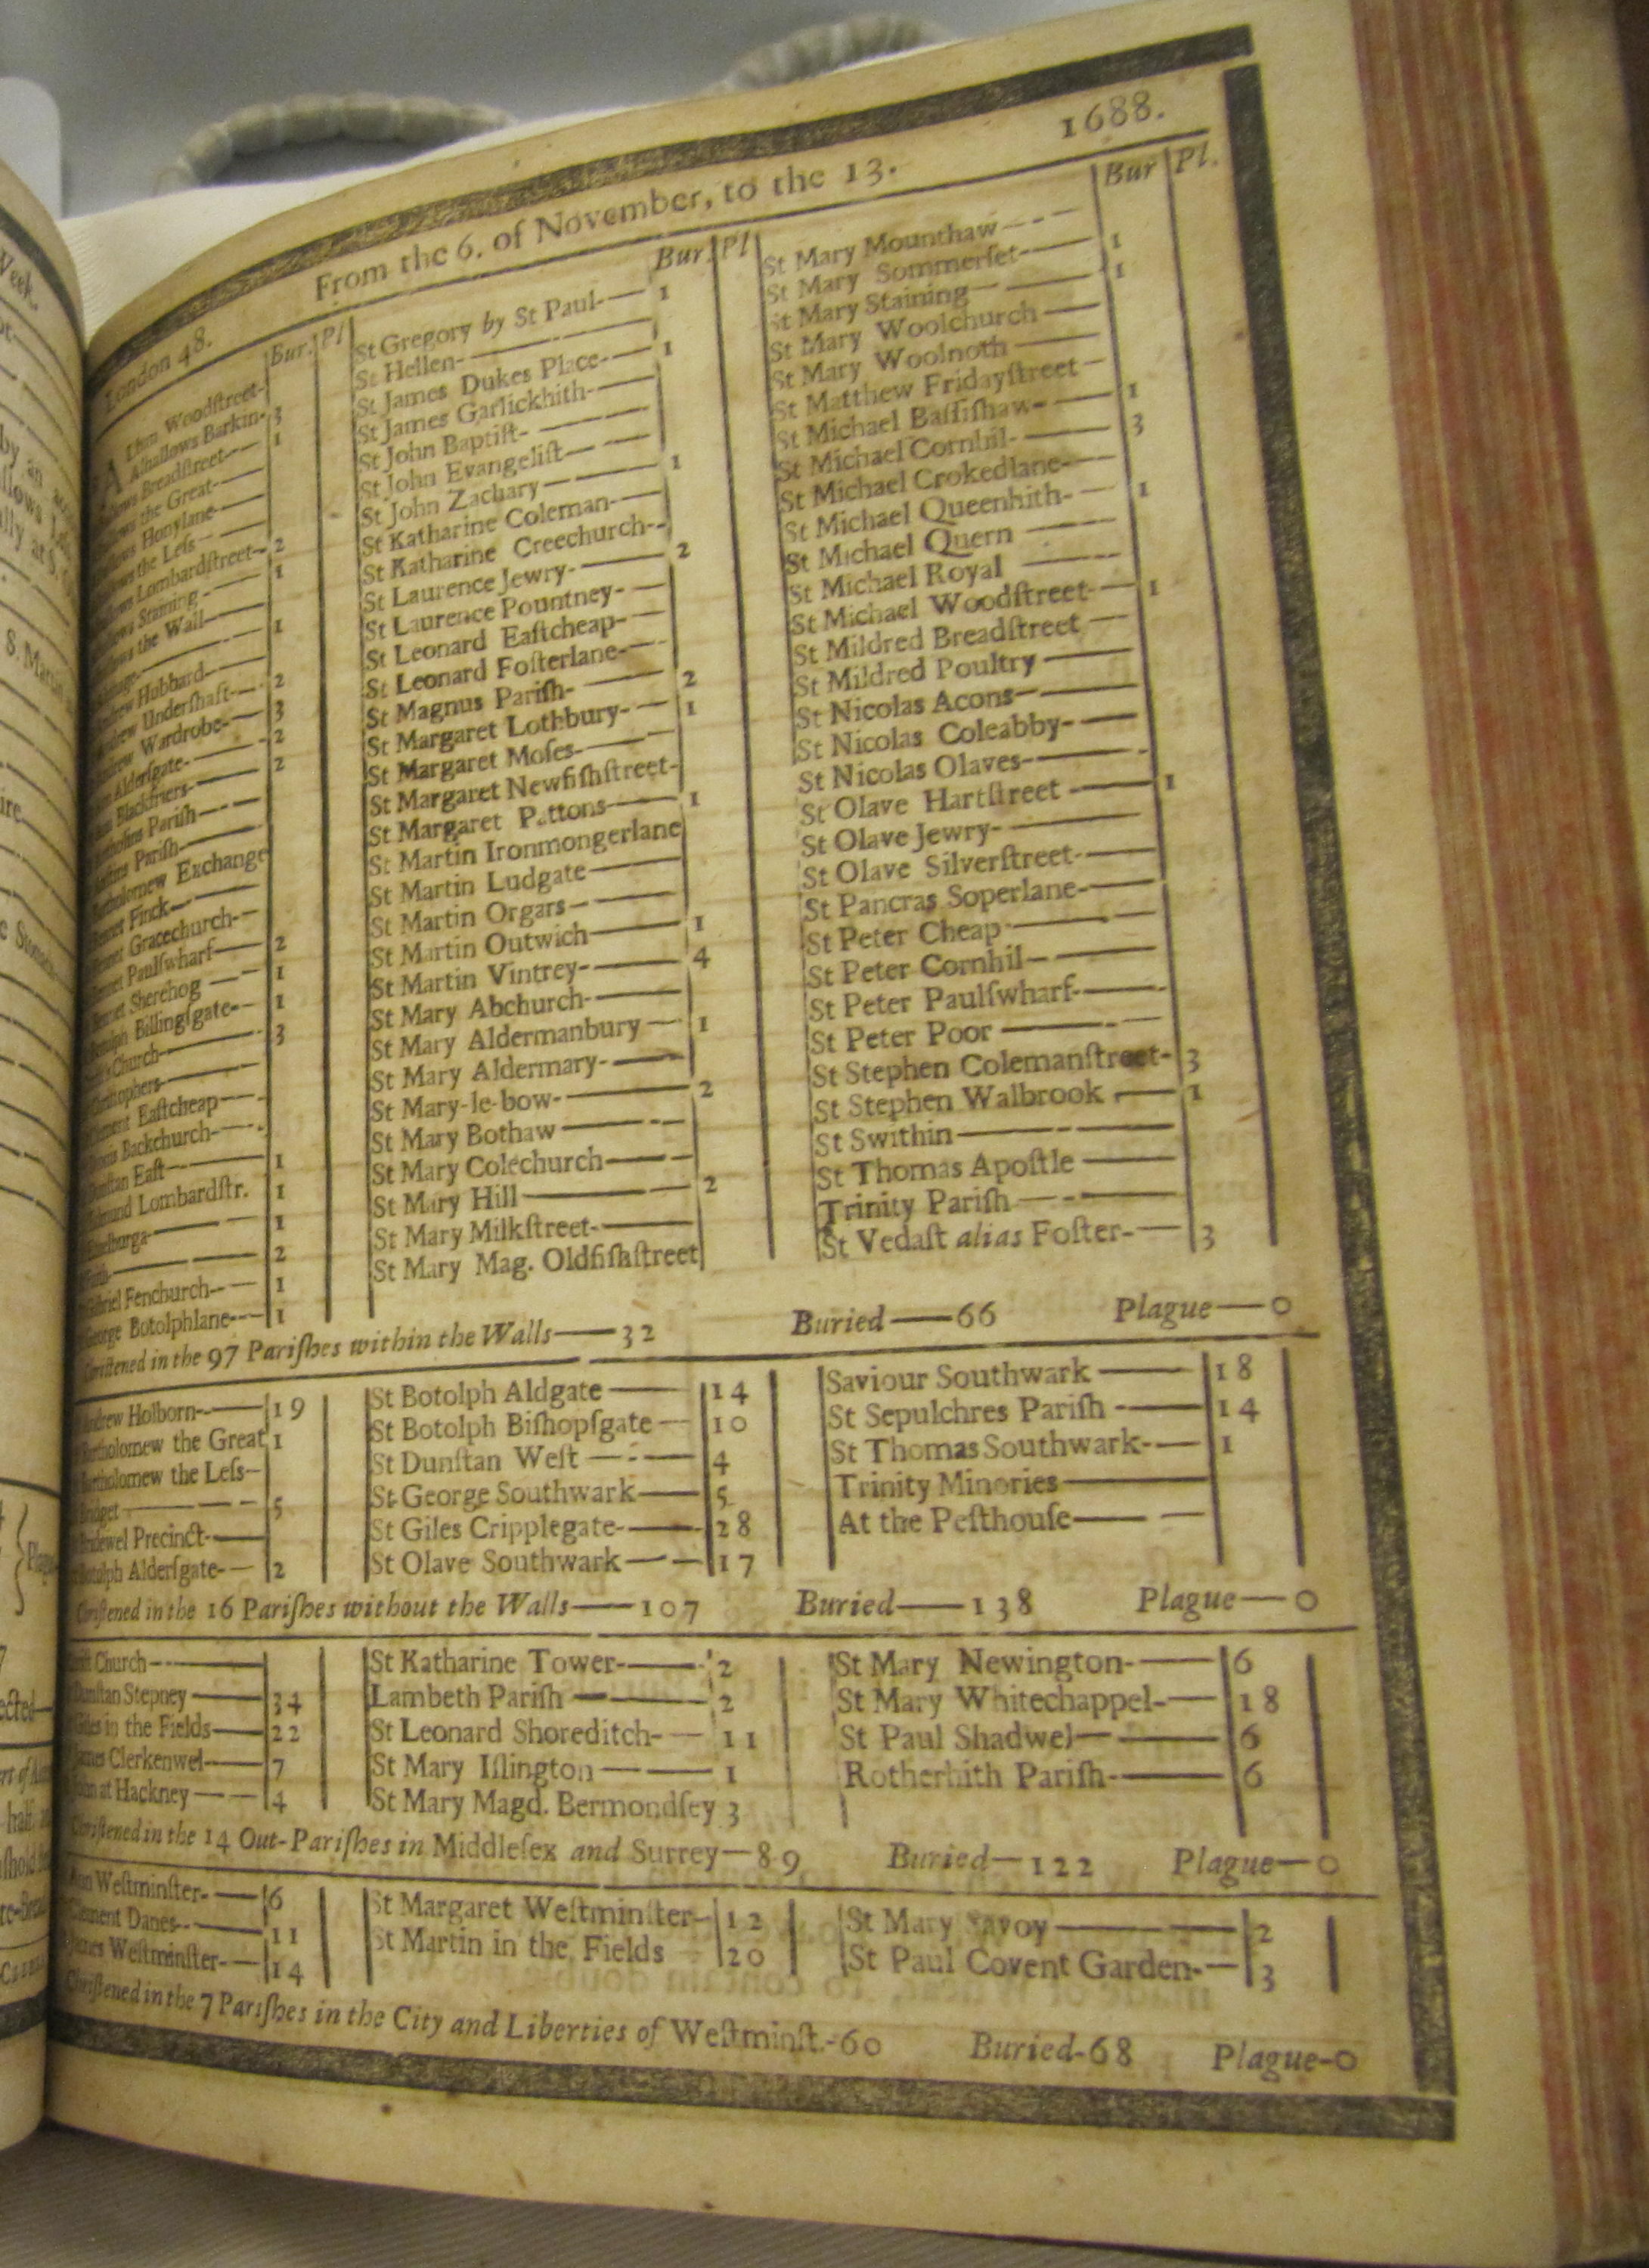 London 48. From the 6. of November, to the 13. 1688.
Bur. Pl
Woodſtreet-
Alhallows Barkin- 3
Breadſtreet— 1
the Great—
Honylane—
the Leſs—
Lombardſtreet— 2
Staining — 1
the Wall—
— 1
Hubbard—
Underſhaft— 2
Wardrobe— 3
Alderſgate— 2
Blackfriers— 2
Pariſh—
Pariſh—
Exchange
Finck—
Gracechurch—
Paulſwharf— 2
Sherehog — 1
Billingſgate— 1
Church— 3
—
Eaſtcheap—
Backchurch—
Eaſt— 1
Lombardſtr. 1
— 1
— 2
Fenchurch— 1
George Botolphlane— 1
Bur. Pl
St Gregory by St Paul— 1
St Hellen-—
St James Dukes Place-— 1
St James Garlickhith-—
St John Baptiſt-—
St John Evangeliſt—
St John Zachary— 1
St Katharine Coleman-—
St Katharine Creechurch--
St Laurence Jewry-— 2
St Laurence Pountney-—
St Leonard Eaſtcheap-—
St Leonard Foſterlane-—
St Magnus Pariſh-— 2
St Margaret Lothbury-— 1
St Margaret Moſes-—
St Margaret Newfiſhſtreet-
St Margaret Pattons— 1
St Martin Ironmongerlane
St Martin Ludgate—
St Martin Orgars—
St Martin Outwich— 1
St Martin Vintrey-— 4
St Mary Abchurch-—
St Mary Aldermanbury— 1
St Mary Aldermary-—
St Mary-le-bow-— 2
St Mary Bothaw—
St Mary Colechurch—
St Mary Hill— 2
St Mary Milkſtreet-—
St Mary Mag. Oldfiſhſtreet
Bur Pl.
St Mary Mounthaw—
St Mary Sommerſet-— 1
St Mary Staining— 1
St Mary Woolchurch—
St Mary Woolnoth—
St Matthew Fridayſtreet—
St Michael Baſſiſhaw-— 1
St Michael Cornhil-— 3
St Michael Crokedlane-—
St Michael Queenhith-— 1
St Michael Quern —
St Michael Royal —
St Michael Woodſtreet-— 1
St Mildred Breadſtreet —
St Mildred Poultry —
St Nicolas Acons—
St Nicolas Coleabby-—
St Nicolas Olaves-—
St Olave Hartſtreet — 1
St Olave Jewry-—
St Olave Silverſtreet-—
St Pancras Soperlane-—
St Peter Cheap—
St Peter Cornhil—
St Peter Paulſwharf-—
St Peter Poor —
St Stephen Colemanſtreet- 3
St Stephen Walbrook — 1
St Swithin—
St Thomas Apoſtle —
Trinity Pariſh—
St Vedaſt alias Foſter-— 3
Chriſtened in the 97 Pariſhes within the Walls—32 Buried—66 Plague—0
Andrew Holborn-— 19
Bartholomew the Great 1
Bartholomew the Leſs—
Bridget — 5
Bridewel Precinct-—
Botolph Alderſgate-— 2
St Botolph Aldgate — 14
St Botolph Biſhopſgate — 10
St Dunſtan Weſt — 4
St George Southwark— 5
St Giles Cripplegate-— 28
St Olave Southwark— 17
Saviour Southwark — 18
St Sepulchres Pariſh — 14
St Thomas Southwark-— 1
Trinity Minories—
At the Peſthouſe—
Chriſtened in the 16 Pariſhes without the Walls—107 Buried—138 Plague—0
Church—
Dunſtan Stepney — 34
Giles in the Fields— 22
James Clerkenwel— 7
at Hackney — 4
St Katharine Tower-— 2
Lambeth Pariſh — 2
St Leonard Shoreditch-— 11
St Mary Iſlington — 1
St Mary Magd. Bermondſey 3
St Mary Newington-— 6
St Mary Whitechappel-— 18
St Paul Shadwel— 6
Rotherhith Pariſh-— 6
Chriſtened in the 14 Out-Pariſhes in Middleſex and Surrey—89 Buried—122 Plague—0
Ann Weſtminſter-— 6
Clement Danes-— 11
James Weſtminſter-— 14
St Margaret Weſtminſter— 12
St Martin in the Fields 20
St Mary Savoy — 2
St Paul Covent Garden-— 3
Chriſtened in the 7 Pariſhes in the City and Liberties of Weſtminſt.-60 Buried-68 Plague-0